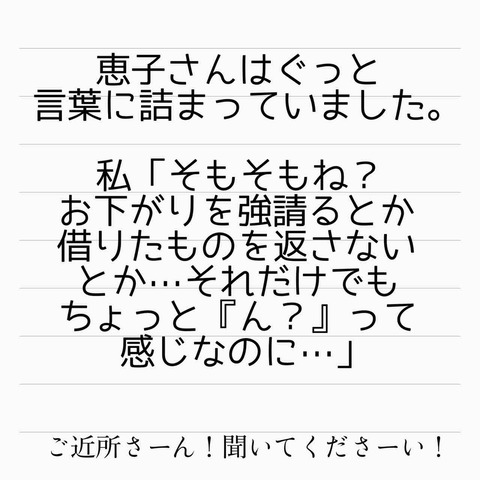 恵子さんはぐっと
言葉に詰まっていました。
私「そもそもね？
お下がりを強請るとか
借りたものを返さない
とか…それだけでも
ちょっと『ん？』って
感じなのに…」
ご近所さーん！聞いてくださーい！